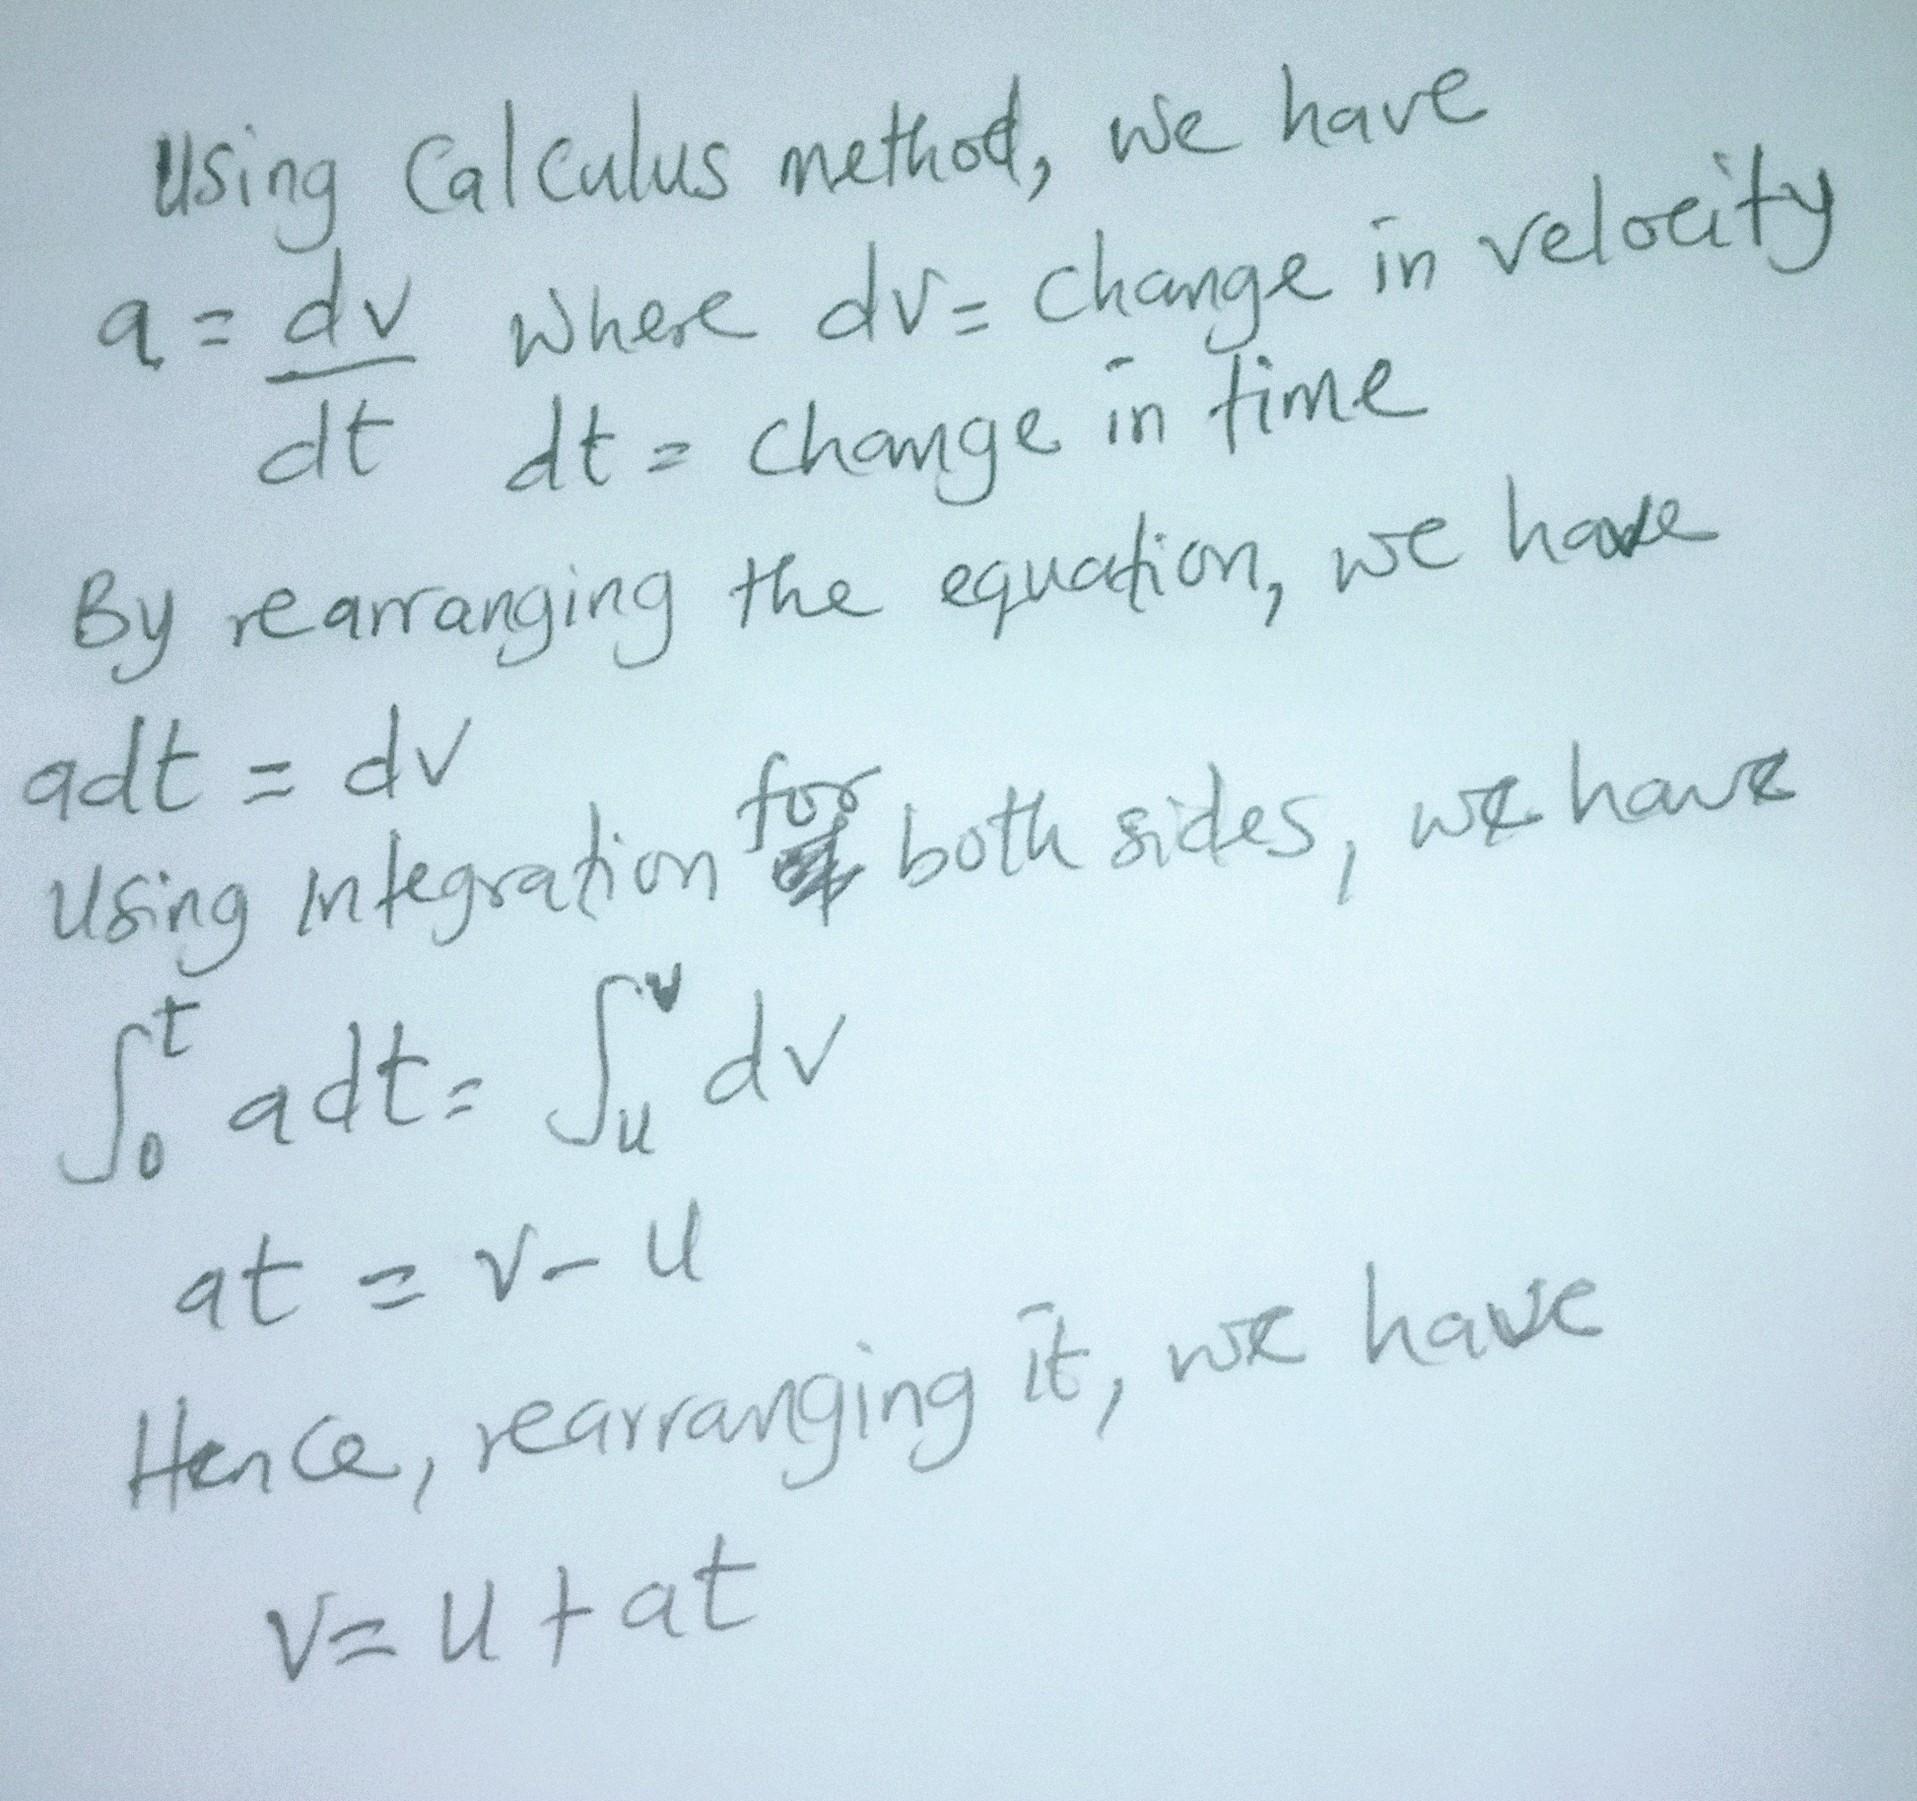 Using Calculus method, we have
a = dv/dt where dv = change in velocity
dt = change in time
By rearranging the equation, we have
adt = dv
Using Integration for both sides, we have
∫₀ᵗ adt = ∫ᵤᵛ dv
at = v - u
Hence, rearranging it, we have
v = u + at